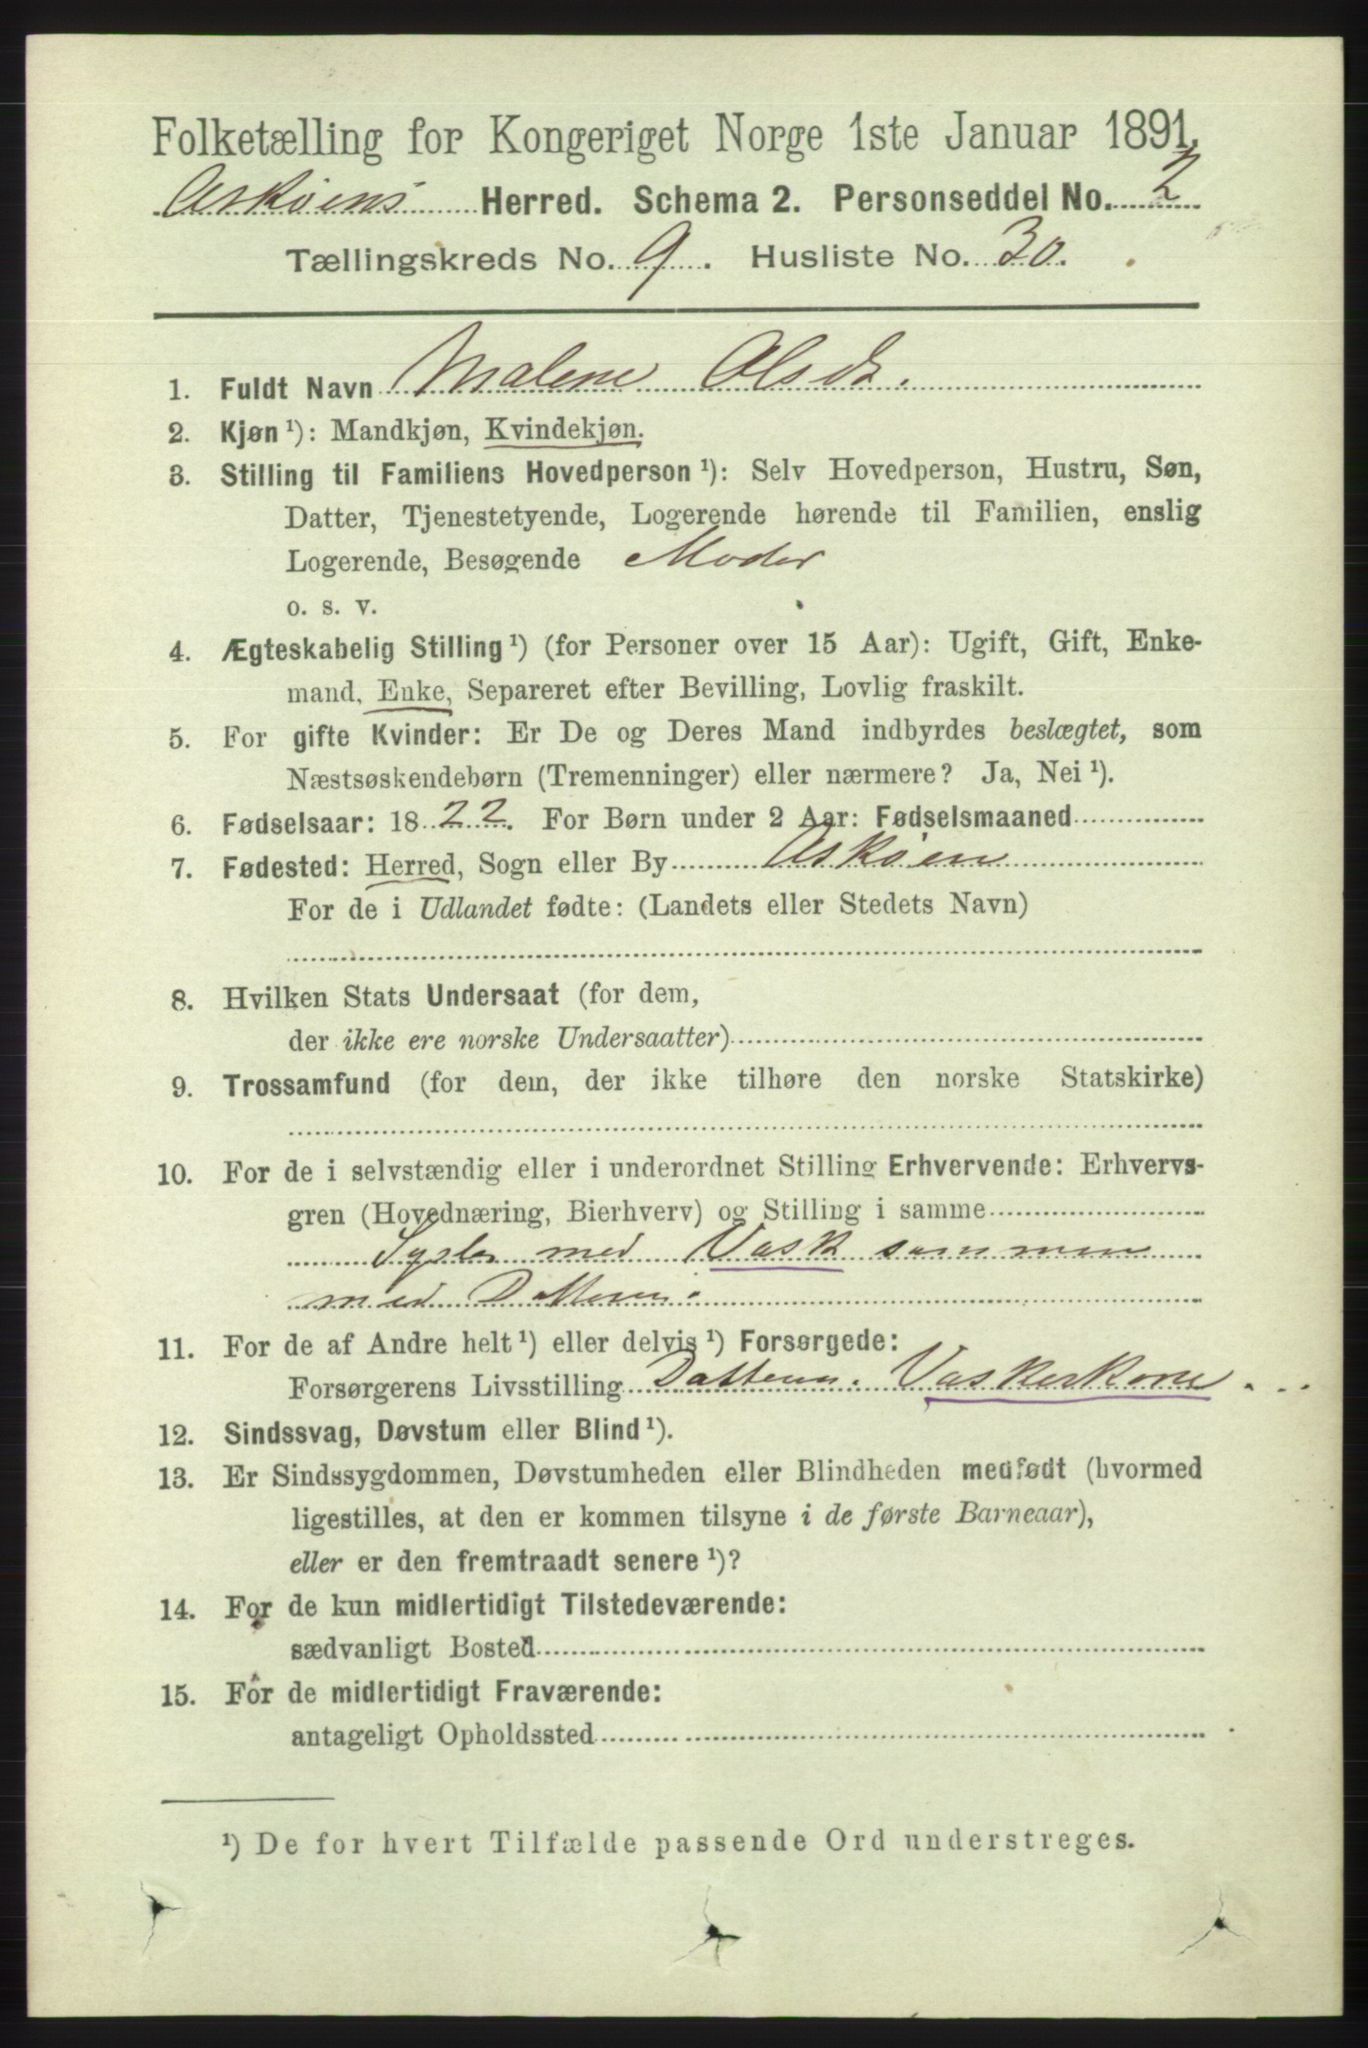 Folketælling for Kongeriget Norge 1ste Januar 1891.
Askøens Herred. Schema 2. Personseddel No. 2
Tællingskreds No. 9. Husliste No. 30.
1. Fuldt Navn Malene Olsdt.
2. Kjøn ¹): Mandkjøn, Kvindekjøn.
3. Stilling til Familiens Hovedperson ¹): Selv Hovedperson, Hustru, Søn,
Datter, Tjenestetyende, Logerende hørende til Familien, enslig
Logerende, Besøgende Moder
o. s. v.
4. Ægteskabelig Stilling ¹) (for Personer over 15 Aar): Ugift, Gift, Enke-
mand, Enke, Separeret efter Bevilling, Lovlig fraskilt.
5. For gifte Kvinder: Er De og Deres Mand indbyrdes beslægtet, som
Næstsøskendebørn (Tremenninger) eller nærmere? Ja, Nei ¹).
6. Fødselsaar: 1822. For Børn under 2 Aar: Fødselsmaaned
7. Fødested: Herred, Sogn eller By Askøen
For de i Udlandet fødte: (Landets eller Stedets Navn)
8. Hvilken Stats Undersaat (for dem,
der ikke ere norske Undersaatter)
9. Trossamfund (for dem, der ikke tilhøre den norske Statskirke)
10. For de i selvstændig eller i underordnet Stilling Erhvervende: Erhvervs-
gren (Hovednæring, Bierhverv) og Stilling i samme
Sysler med Vask sammen
med Datteren.
11. For de af Andre helt ¹) eller delvis ¹) Forsørgede:
Forsørgerens Livsstilling Datteren. Vaskerkone
12. Sindssvag, Døvstum eller Blind ¹).
13. Er Sindssygdommen, Døvstumheden eller Blindheden medfødt (hvormed
ligestilles, at den er kommen tilsyne i de første Barneaar),
eller er den fremtraadt senere ¹)?
14. For de kun midlertidigt Tilstedeværende:
sædvanligt Bosted
15. For de midlertidigt Fraværende:
antageligt Opholdssted
¹) De for hvert Tilfælde passende Ord understreges.